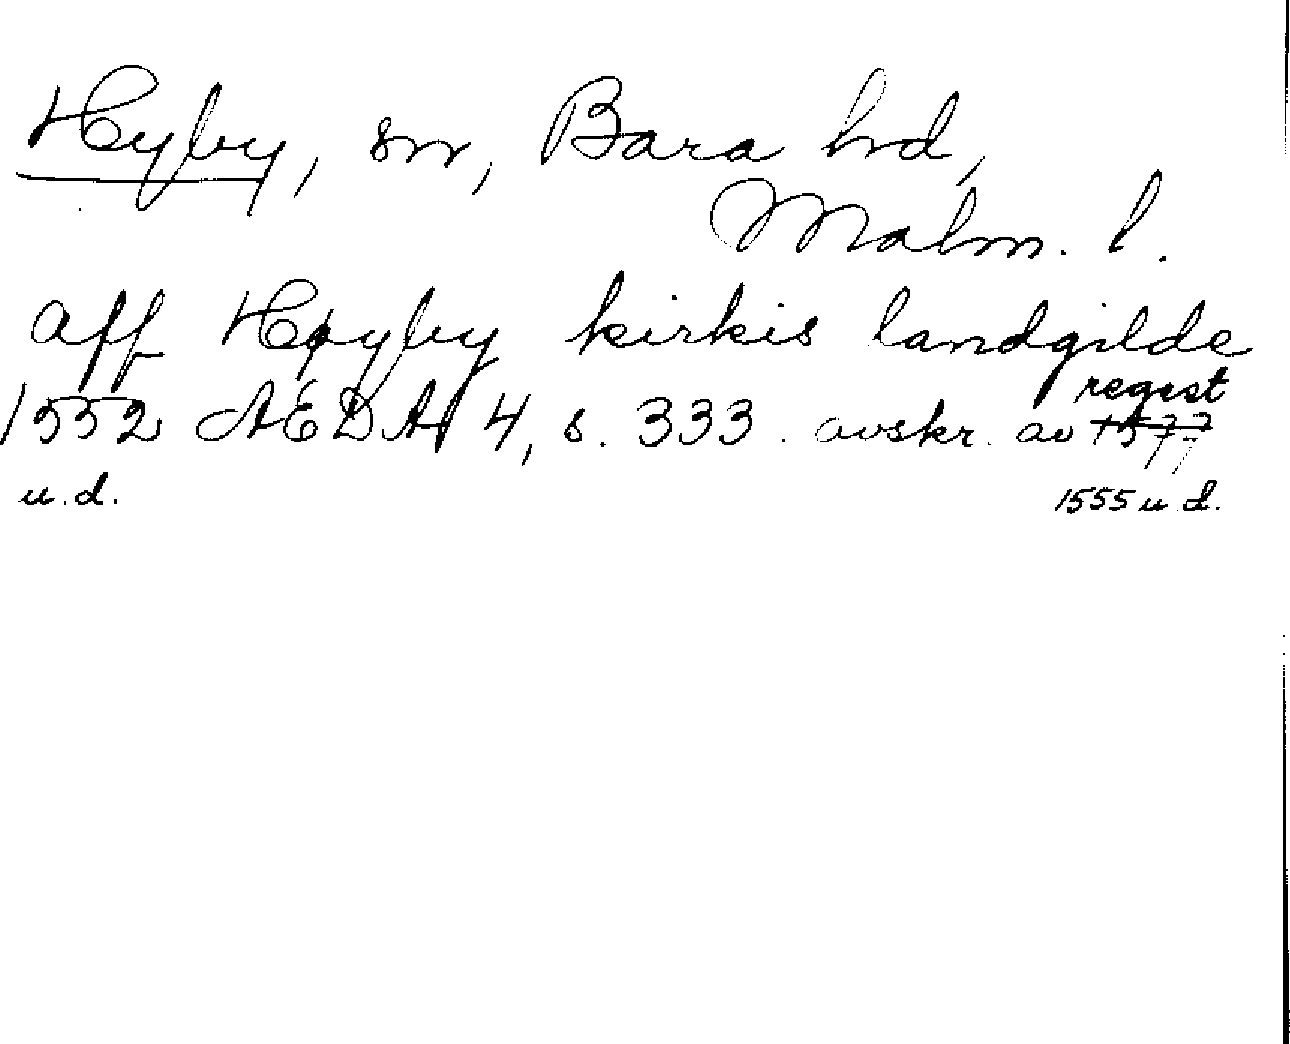 Hyby, sn, Bara hd,
Malm. l.
aff Høyby kirkis landgilde
regist
1552 AEDA 4, s. 333. avskr. av 1577
u.d. 1555 u.d.